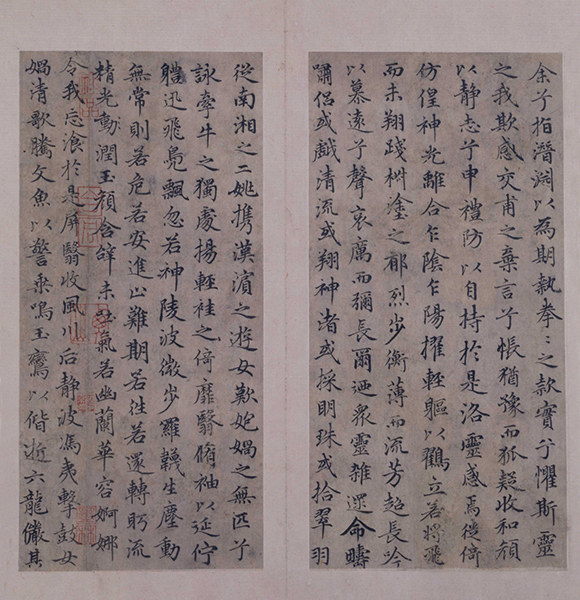 余兮指潛淵以為期執拳〻之款實兮懼斯靈
之我欺感交甫之棄言兮悵猶豫而狐疑收和顏
以靜志兮申禮防以自持於是洛靈感焉徙倚
仿偟神光離合乍陰乍陽擢輕軀以鶴立若將飛
而未翔踐椒塗之郁烈步衡薄而流芳超長吟
以慕遠兮聲哀厲而彌長爾迺衆靈雜遝命疇
嘯侶或戲清流或翔神渚或採明珠或拾翠羽
從南湘之二姚攜漢濱之遊女歎媧之無匹兮
詠牽牛之獨處揚輕袿之倚靡翳脩袖以延佇
體迅飛鳧飄忽若神陵波微步羅韈生塵動
無常則若危若安進止難期若往若還轉眄流
精光動潤玉顏含辭未吐氣若幽蘭華容婀娜
令我忘飡於是屏翳收風川后靜波馮夷擊鼓女
媧清歌騰文魚以警乘鳴玉鸞以偕逝六龍儼其